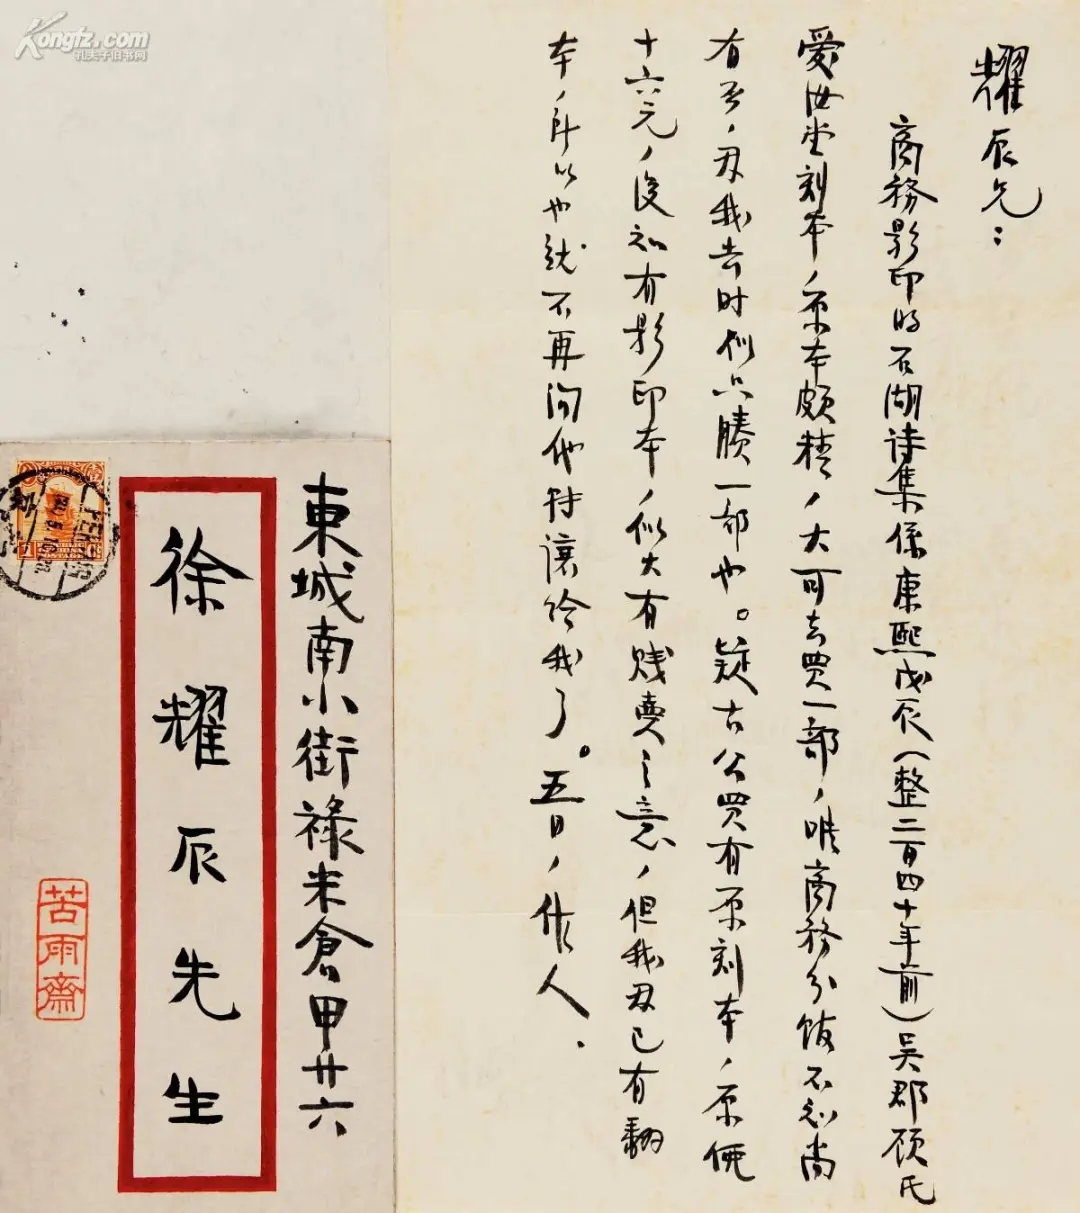 耀辰兄：
商務影印的石湖诗集係康熙戊辰（整二百四十年前）吴郡顾氏
愛汝堂刻本，原本頗精，大可去買一部，唯商務分館不知尚
有否，因我去时似只賸一部也。疑古公買有原刻本，原價
十六元，後知有影印本，似大有贱賣之意，但我因已有翻
本，所以也就不再问他转讓给我了。五日，作人．
東城南小街祿米倉甲廿六
徐耀辰先生
苦雨齋
Kongfz.com
孔夫子旧书网